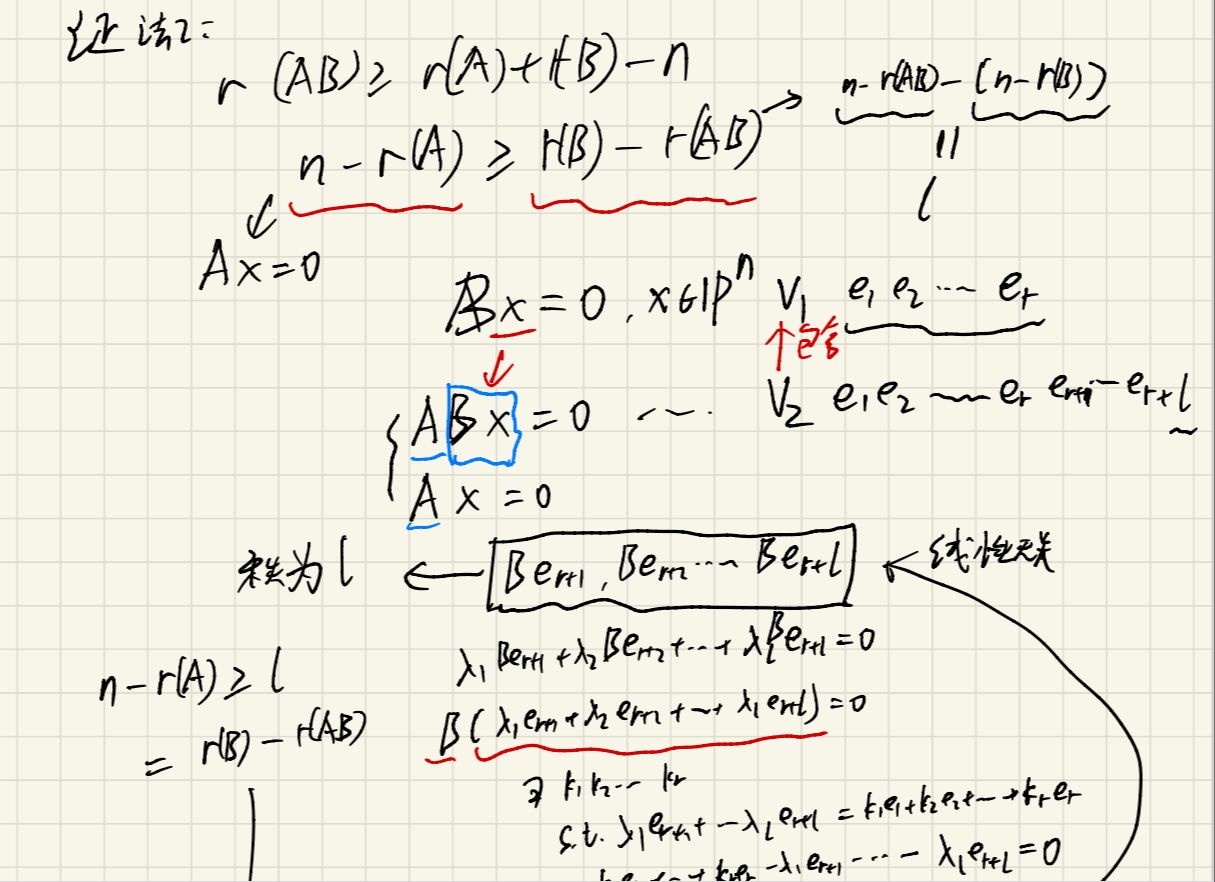 证法2:
r(AB) ≥ r(A)+r(B)-n
n-r(AB)-(n-r(B))
n-r(A) ≥ r(B)-r(AB) →
||
l
↙
Ax=0
Bx=0, x∈ℙⁿ V₁ e₁ e₂ ⋯ eᵣ
↓ ↑包含
ABx=0 ⋯ V₂ e₁e₂ ⋯ eᵣ eᵣ₊₁⋯eᵣ₊l
Ax=0
秩为l ← Beᵣ₊₁, Beᵣ₊₂ ⋯ Beᵣ₊l ← 线性无关
λ₁Beᵣ₊₁+λ₂Beᵣ₊₂+⋯+λlBeᵣ₊l=0
n-r(A) ≥ l
B(λ₁eᵣ₊₁+λ₂eᵣ₊₂+⋯+λleᵣ₊l)=0
= r(B)-r(AB)
∃ k₁k₂⋯kᵣ
s.t. λ₁eᵣ₊₁+⋯λleᵣ₊l=k₁e₁+k₂e₂+⋯+kᵣeᵣ
+kᵣeᵣ-λ₁eᵣ₊₁-⋯-λleᵣ₊l=0